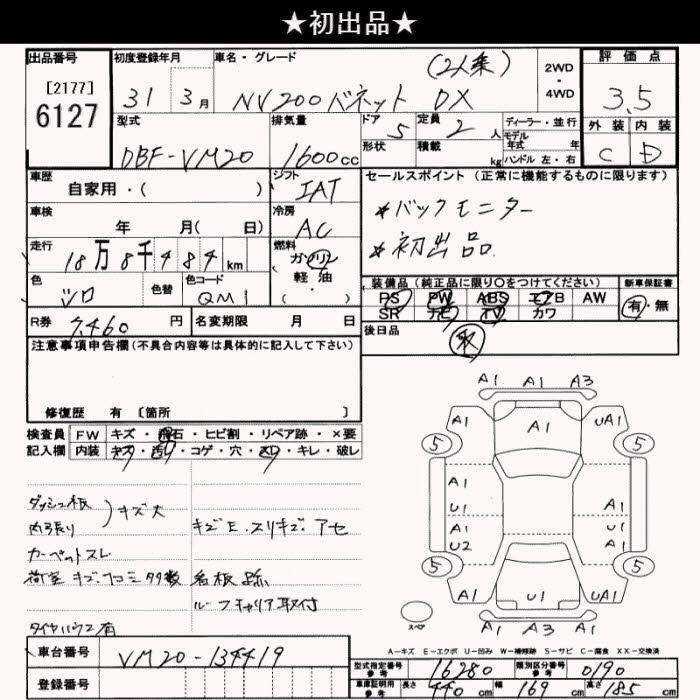 ★初出品★
出品番号 初度登録年月 車名・グレード (2人乗) 2WD ・ 4WD 評価点
[2177]
6127
31 3月 NV200バネット DX 3.5
型式 排気量 ドア 5 定員 2 人 ディーラー・並行 外装 内装
モデル年式 年
DBF-VM20 1600cc 形状 積載 kg ハンドル 左・右 C D
車歴 シフト セールスポイント (正常に機能するものに限ります)
自家用・( ) IAT
車検 冷房 *バックモニター
年 月( 日) AC
*初出品
走行 燃料
18万8千484km ガソリン・軽油
装備品 (純正品に限り○をつけてください) 新車保証書
色 色替 色コード
シロ QM1
PS PW ABS エアB AW 有・無
SR ナビ TV カワ
R券 7,460円 名変期限 月 日 後日品
注意事項申告欄(不具合内容等は具体的に記入して下さい)
修復歴 有 [箇所 ]
検査員 FW キズ・飛石・ヒビ割・リペア跡・×要
記入欄 内装 キズ・汚れ・コゲ・穴・スレ・キレ・破レ
ダッシュ板
内張り キズ大
カーペットスレ
荷室 キズ・凹ミ多数
タイヤハウス有
キズE.スリキズ.アセ
名板跡
ルーフキャリア取付
A1 A1 A3
A1 A1 UA1
5 5
A1 A1
U1 U1
A1 A1
U2
5 5
A1 U1 UA1
スペア A1 A3 A1
A−キズ E−エクボ U−凹み W−補修跡 S−サビ C−腐食 XX−交換済
車台番号 VM20-134419
型式指定番号 参考 16280 類別区分番号 参考 0190
登録番号 車庫証明用 参考 長さ 440cm 幅 169cm 高さ 185cm